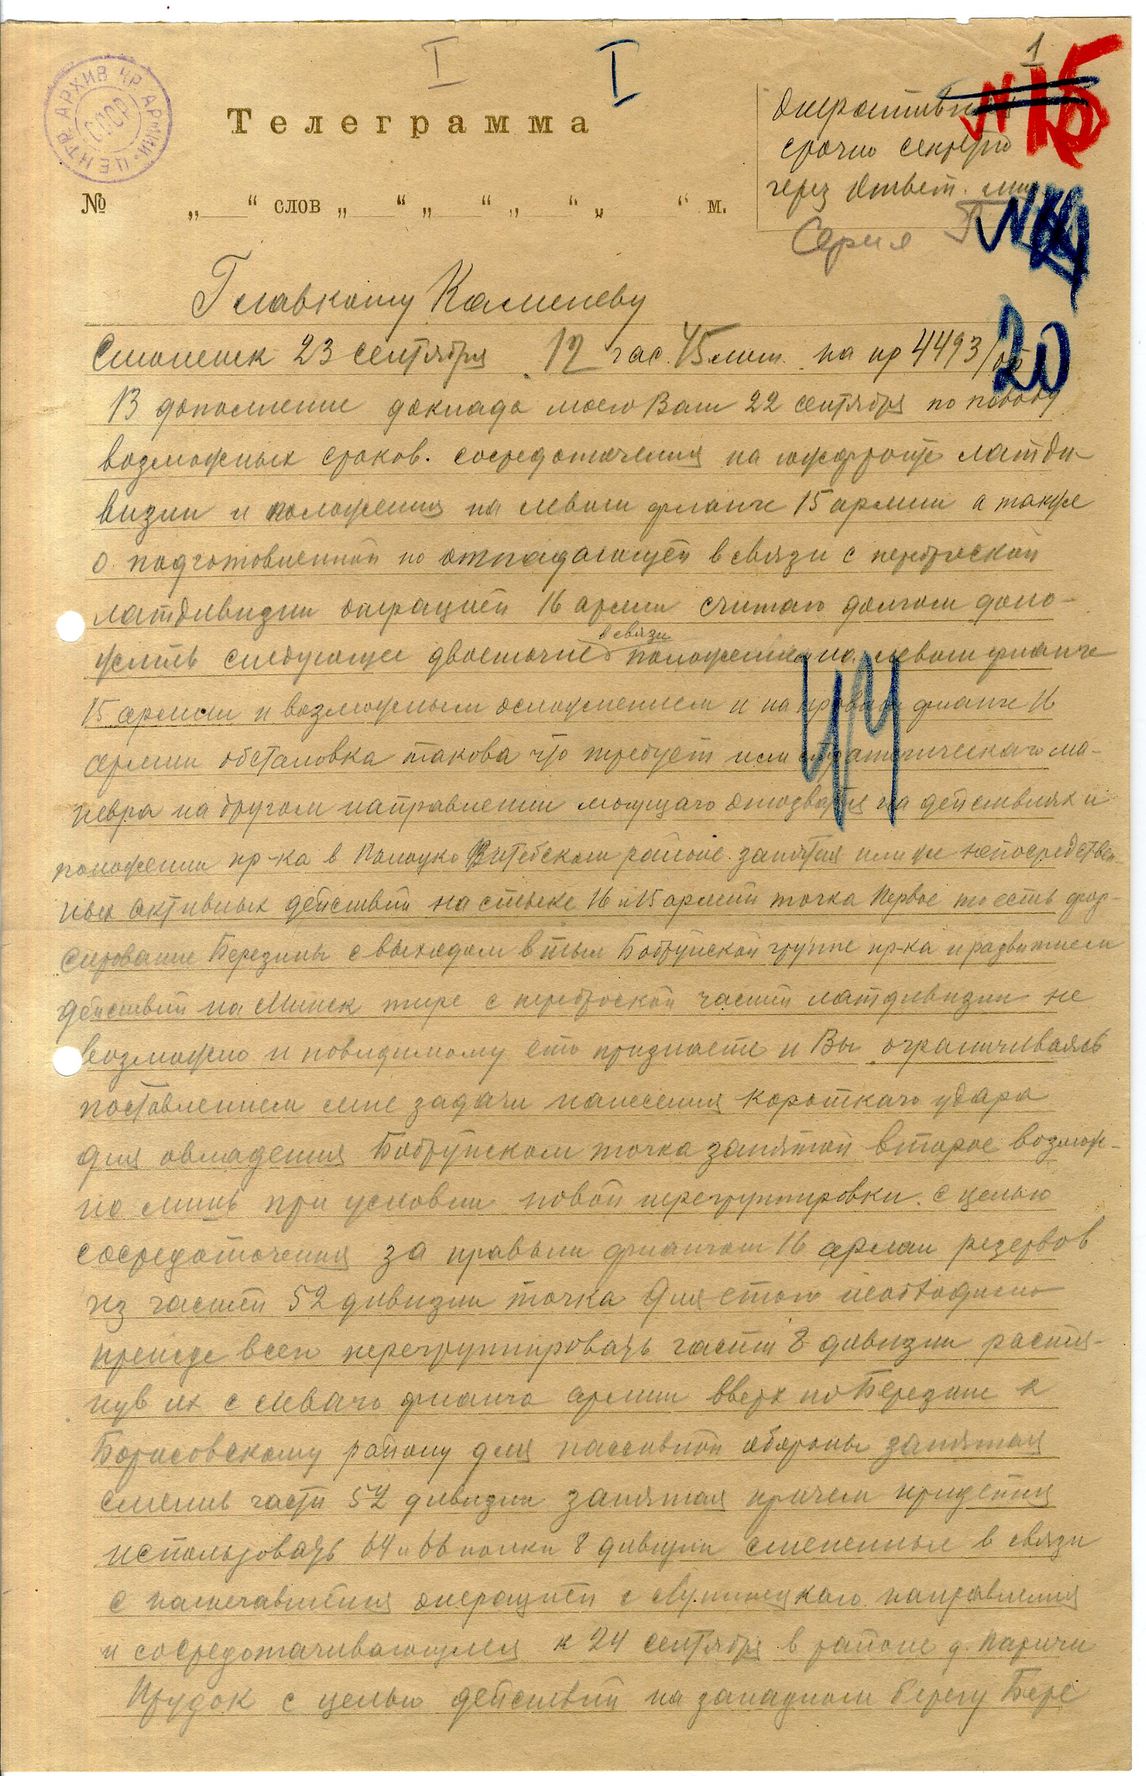 1
I I
ЦЕНТР. АРХИВ КР. АРМИИ
СССР
Телеграмма
Оперативная
№ 15
срочно секретно
через ответ.
№ „ “ слов „ “ „ “ „ “ „ “ м.
Серия Г
Главкому Каменеву
20
Смоленск 23 сентября 12 час. 45 мин. на нр 4493/оп
В дополнение доклада моего Вам 22 сентября по поводу
возможных сроков. сосредоточения на южфронте латди-
визии и положения на левом фланге 15 армии а также
о. подготовленной но отпадающей в связи с переброской
латдивизии операцией 16 армии считаю долгом доло-
жить следующее двоеточие в связи положением на левом фланге
15 армии и возможным осложнением и на правом фланге 16
армии обстановка такова что требует или стратегическаго ма-
невра на другом направлении могущаго отозваться на действиях и
положении пр-ка в Полоцко Витебском районе. запятая или же непосредствен-
ных активных действий на стыке 16 и 15 армий точка Первое то есть фор-
сирование Березины с выходом в тыл Бобруйской группе пр-ка и развитием
действий на Минск тире с переброской частей латдивизии не
возможно и повидимому это признаете и Вы ограничиваясь
поставлением мне задачи нанесения короткаго удара
для овладения Бобруйском точка запятой второе возмож-
но лишь при условии новой перегруппировки. с целью
сосредоточения за правым флангом 16 армии резервов
из частей 52 дивизии точка Для этого необходимо
прежде всего перегруппировать части 8 дивизии растя-
нув их с леваго фланга армии вверх по Березине к
Борисовскому району для пассивной обороны запятая
сменив части 52 дивизии запятая причем придется
использовать 64 и 66 полки 8 дивизии смененные в связи
с намечавшейся операцией с Лунинецкаго направления
и сосредотачивающиеся к 24 сентября в районе д. Паричи
Прудок с целью действий на западном берегу Бере